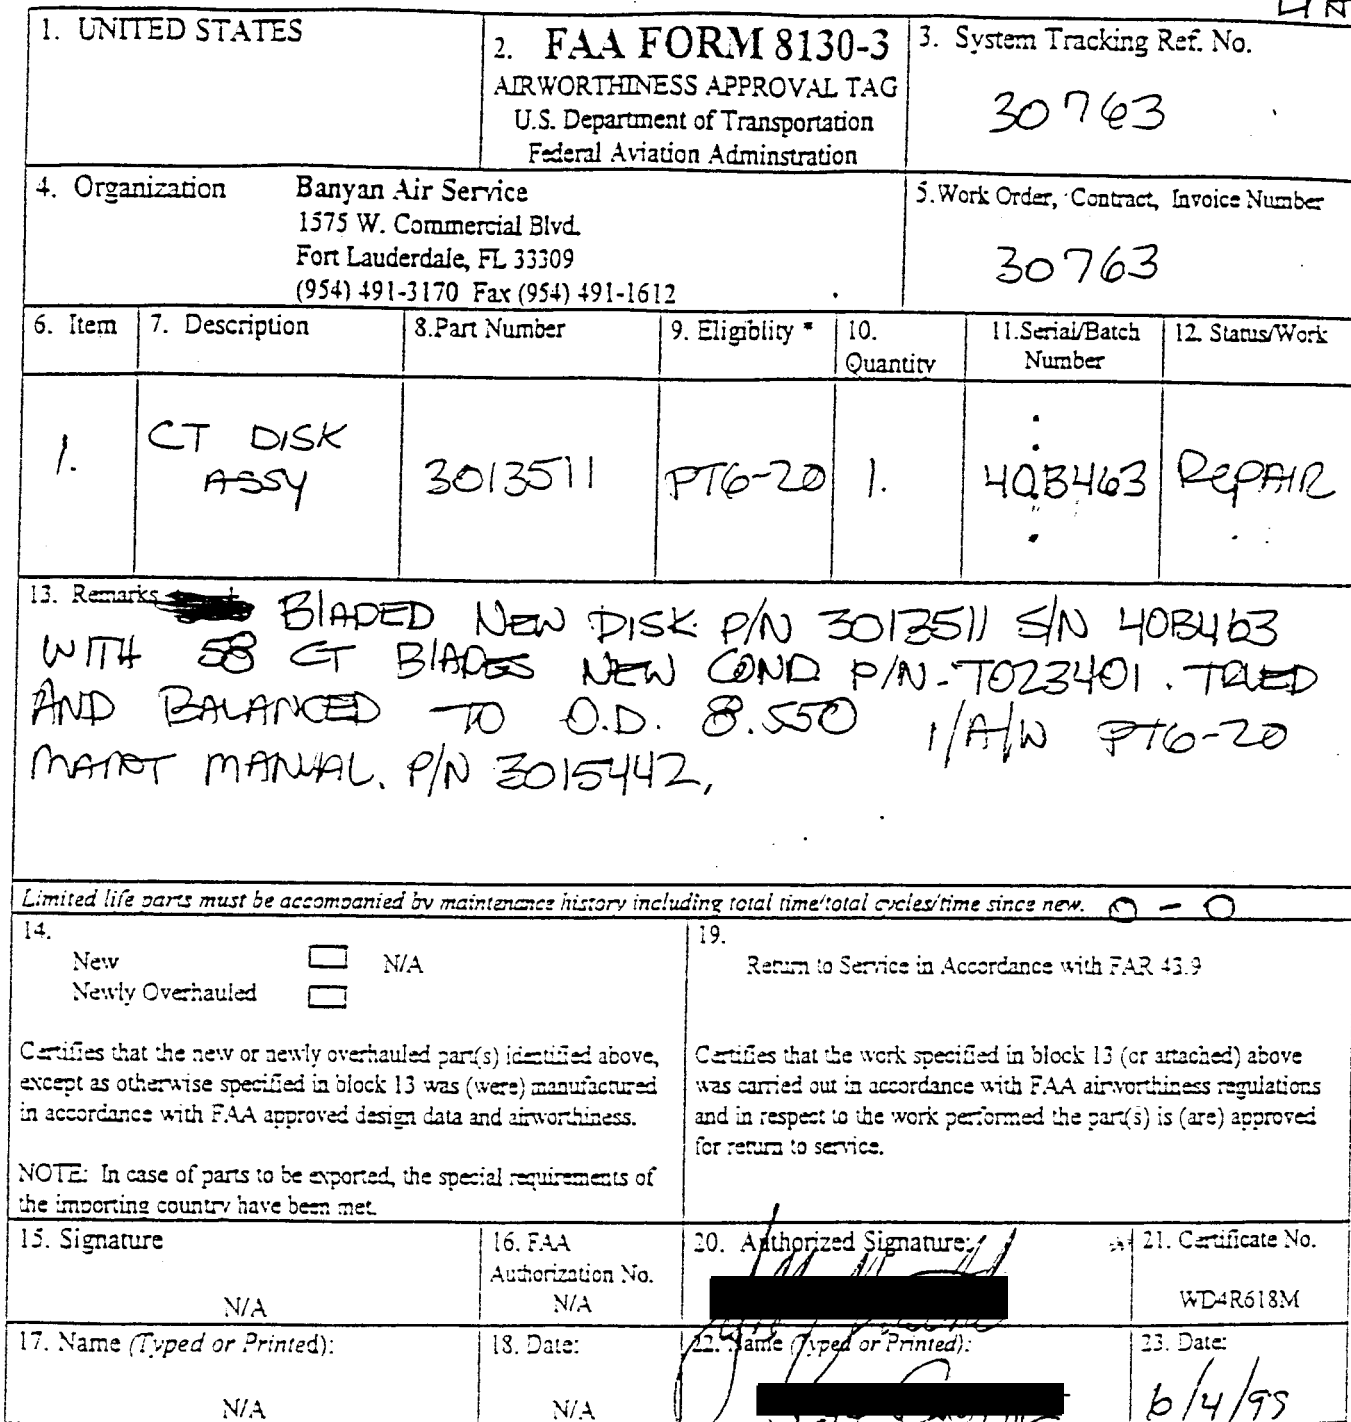 1. UNITED STATES
2. FAA FORM 8130-3
AIRWORTHINESS APPROVAL TAG
U.S. Department of Transportation
Federal Aviation Adminstration
3. System Tracking Ref. No.
30763
4. Organization
Banyan Air Service
1575 W. Commercial Blvd.
Fort Lauderdale, FL 33309
(954) 491-3170 Fax (954) 491-1612
5.Work Order, Contract, Invoice Number
30763
6. Item
7. Description
8.Part Number
9. Eligiblity *
10.
Quantity
11.Serial/Batch
Number
12. Status/Work
1.
CT DISK
ASSY
3013511
PT6-20
1.
40B463
REPAIR
13. Remarks
BLADED NEW DISK P/N 3013511 S/N 40B463
WITH 58 CT BLADES NEW COND. P/N-T023401. TRUED
AND BALANCED TO O.D. 8.550 I/A/W PT6-20
MAINT MANUAL. P/N 3015442,
Limited life parts must be accompanied by maintenance history including total time/total cycles/time since new. 0 - 0
14.
New N/A
Newly Overhauled
Certifies that the new or newly overhauled part(s) identified above,
except as otherwise specified in block 13 was (were) manufactured
in accordance with FAA approved design data and airworthiness.
NOTE: In case of parts to be exported, the special requirements of
the importing country have been met.
19.
Return to Service in Accordance with FAR 43.9
Certifies that the work specified in block 13 (or attached) above
was carried out in accordance with FAA airworthiness regulations
and in respect to the work performed the part(s) is (are) approved
for return to service.
15. Signature
N/A
16. FAA
Authorization No.
N/A
20. Authorized Signature:
21. Certificate No.
WD4R618M
17. Name (Typed or Printed):
N/A
18. Date:
N/A
22. Name (Typed or Printed):
23. Date:
6/4/99